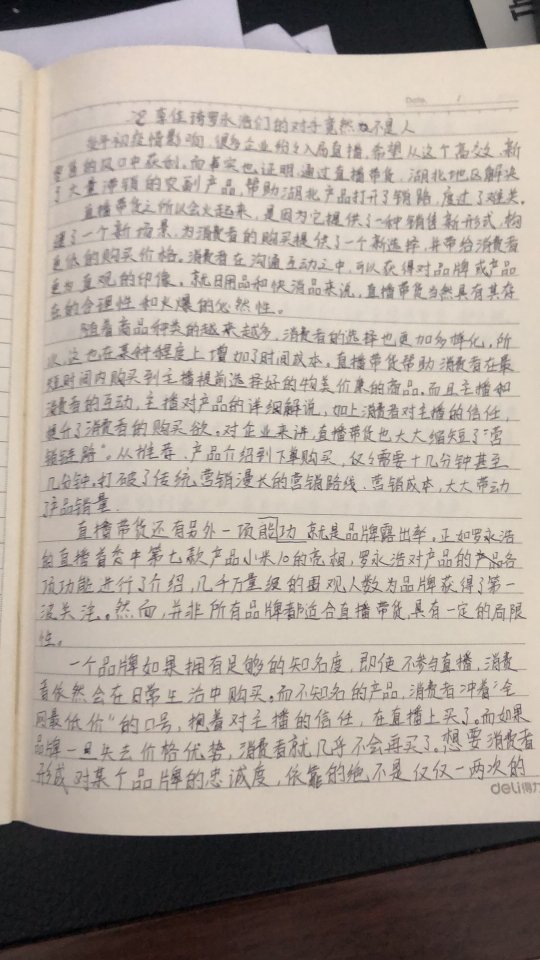 Date /
李佳琦罗永浩们的对手竟然不是人
受疫情影响，很多企业纷々入局直播，希望从这个高效、新
的风口中获利。而事实也证明，通过直播带货，湖北地区解决
了大量滞销的农副产品，帮助湖北产品打开了销路，度过了难关。
直播带货之所以会火起来，是因为它提供了一种销售新形式，构
建了一个新场景，为消费者的购买提供了一个新选择，并带给消费者
更低的购买价格。消费者在沟通互动之中，可以获得对品牌或产品
更为直观的印像。就日用品和快消品来说，直播带货当然具有其存
在的合理性和火爆的必然性。
随着商品种类的越来越多，消费者的选择也更加多样化，所
以，这也在某种程度上增加了时间成本。直播带货帮助消费者在最
短时间内购买到主播提前选择好的物美价廉的商品。而且主播和
消费者的互动，主播对产品的详细解说，加上消费者对主播的信任，
提升了消费者的购买欲。对企业来讲，直播带货也大大缩短了“营
销链路”。从推荐、产品介绍到下单购买，仅々需要十几分钟甚至
几分钟。打破了传统营销漫长的营销路线、营销成本，大大带动
产品销量.
直播带货还有另外一项能功 就是品牌露出率。正如罗永浩
的直播首秀中第七款产品小米10的亮相，罗永浩对产品的产品各
项功能进行了介绍，几千万量级的围观人数为品牌获得了第一
波关注。然而，并非所有品牌都适合直播带货，具有一定的局限
性。
一个品牌如果拥有足够的知名度，即使不参与直播，消费
者依然会在日常生活中购买。而不知名的产品，消费者冲着“全
网最低价”的口号，抱着对主播的信任，在直播上买了。而如果
品牌一旦失去价格优势，消费者就几乎不会再买了。想要消费者
形成对某个品牌的忠诚度，依靠的绝不是仅仅一两次的
deli得力